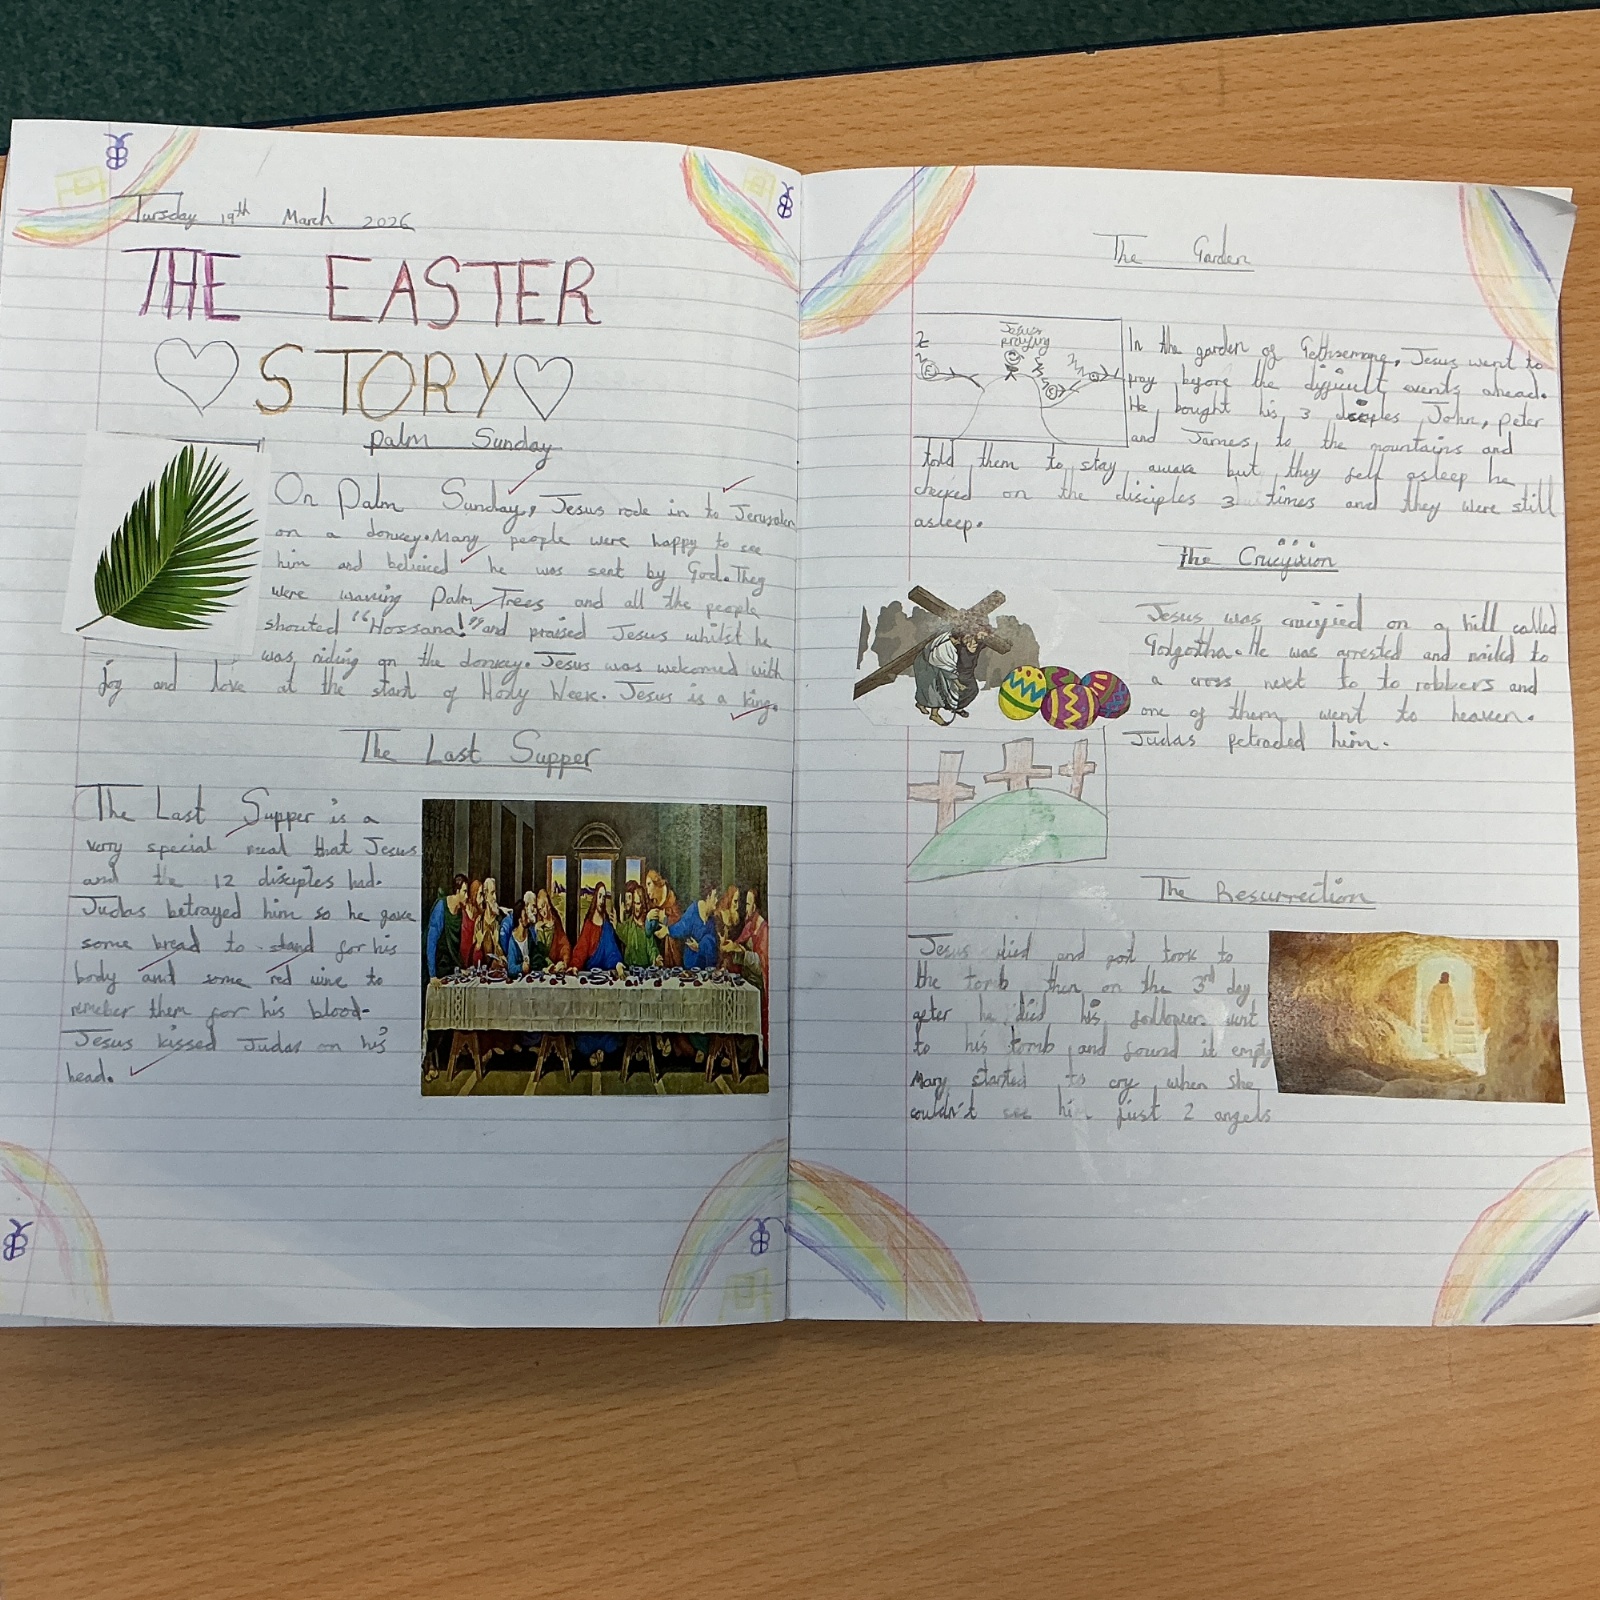 Tursday 19th March 2026
THE EASTER
STORY
Palm Sunday
On Palm Sunday, Jesus rode in to Jerusalem
on a donkey. Many people were happy to see
him and believed he was sent by God. They
were waving Palm Trees and all the people
shouted "Hossana!" and praised Jesus whilst he
was riding on the donkey. Jesus was welcomed with
joy and love at the start of Holy Week. Jesus is a king.
The Last Supper
The Last Supper is a
very special meal that Jesus
and the 12 disciples had.
Judas betrayed him so he gave
some bread to stand for his
body and some red wine to
remeber them for his blood.
Jesus kissed Judas on his
head.
The Garden
Jesus
praying
In the garden of Gethsemane, Jesus went to
pray before the difficult events ahead.
He bought his 3 John, peter
and James, to the mountains and
told them to stay awake but they fell asleep he
checked on the disciples 3 times and they were still
asleep.
The Crucifixion
Jesus was crucified on a hill called
Golgotha. He was arrested and nailed to
a cross next to to robbers and
one of them went to heaven.
Judas petraded him.
The Resurrection
Jesus died and got took to
the tomb then on the 3rd day
after he died his went
to his tomb and found it empty
Mary started to cry when she
couldn't see him just 2 angels